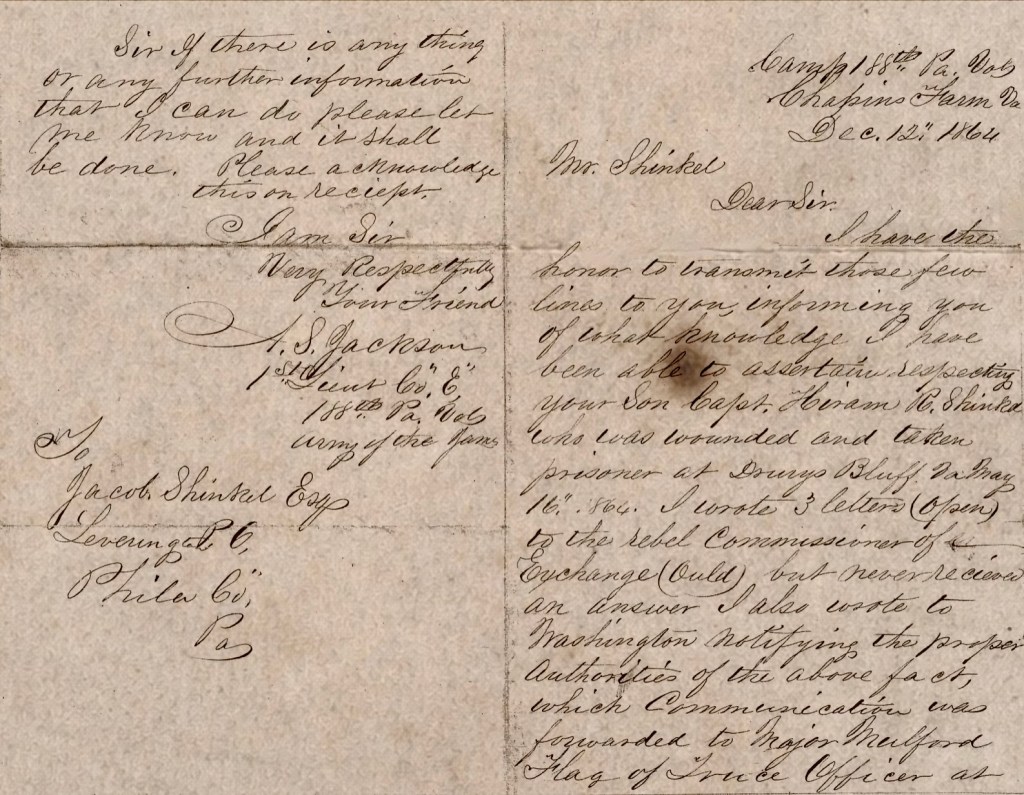 Camp 188th Pa. Vols
Chapins Farm Va
Dec. 12" 1864
Mr. Shinkel
Dear Sir.
I have the
honor to transmit those few
lines to you, informing you
of what knowledge I have
been able to assertain respecting
your Son Capt. Hiram R. Shinkel
who was wounded and taken
prisoner at Drurys Bluff Va May
16". 864. I wrote 3 letters (open)
to the rebel Commissioner of
Exchange (Ould) but never recieved
an answer I also wrote to
Washington notifying the proper
Authorities of the above fact,
which Communication was
forwarded to Major Mulford
Flag of Truce Officer at
Sir If there is any thing
or any further information
that I can do please let
me know and it shall
be done. Please acknowledge
this on reciept.
I am Sir
Very Respectfully
Your Friend
A. S. Jackson
1st Lieut Co. "E"
188th Pa. Vols
Army of the James
To
Jacob Shinkel Esq
Leverington P. O,
Phila Co",
Pa